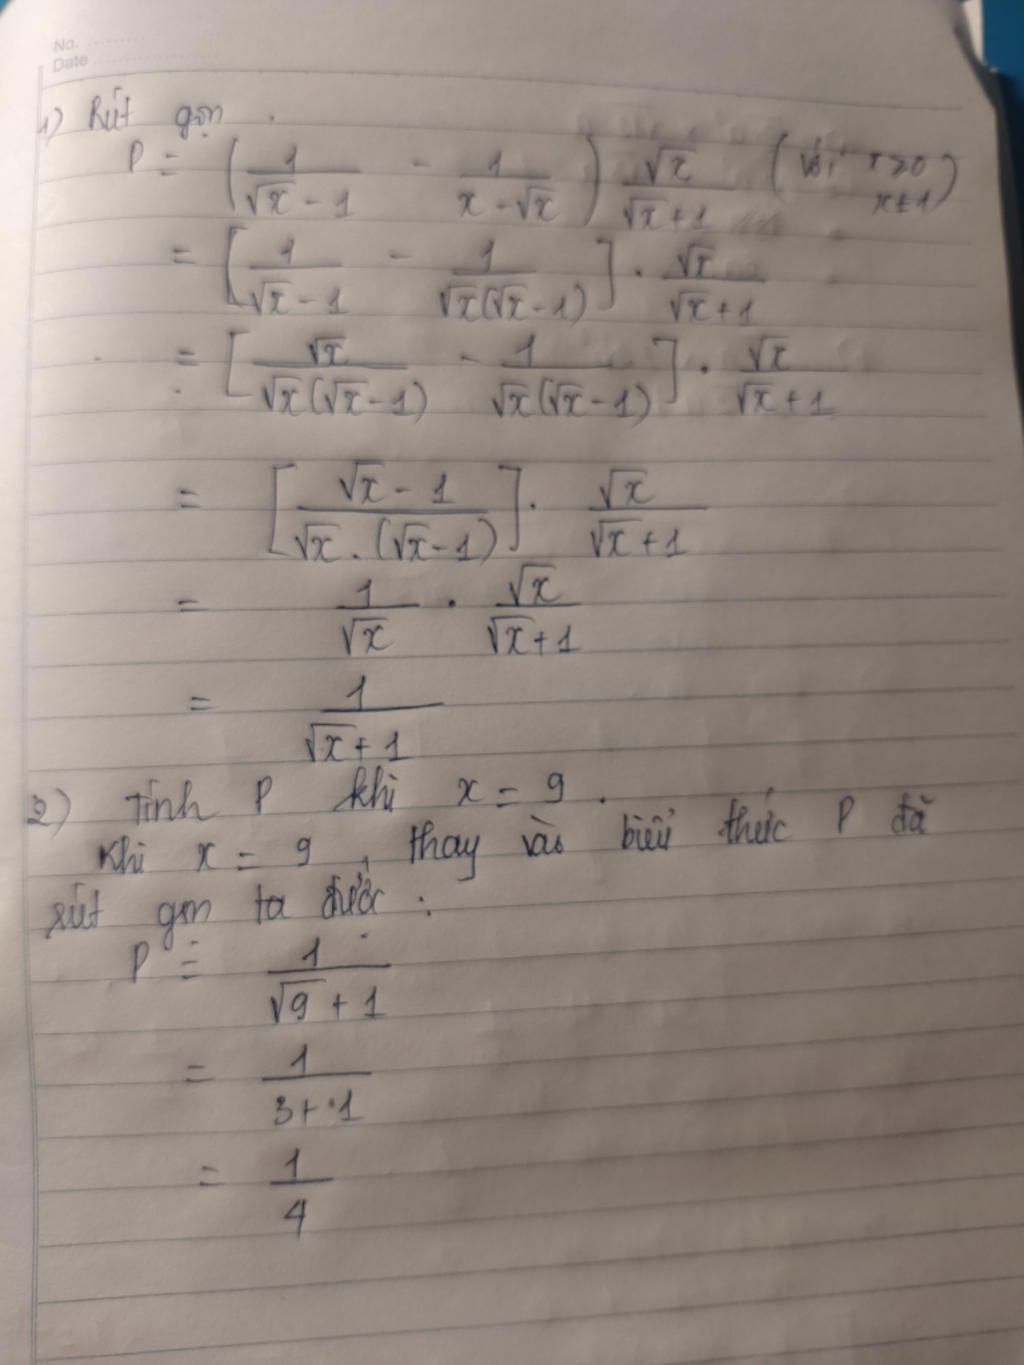 No. ............
Date ....................
1) Rút gọn.
P = (1/(√x - 1) - 1/(x - √x)) √x/(√x + 1) (với x>0
x≠1)
= [1/(√x - 1) - 1/(√x(√x - 1))] · √x/(√x + 1)
= [√x/(√x(√x - 1)) - 1/(√x(√x - 1))] · √x/(√x + 1)
= [(√x - 1)/(√x . (√x - 1))] · √x/(√x + 1)
= 1/√x · √x/(√x + 1)
= 1/(√x + 1)
2) Tính P khi x = 9.
Khi x = 9, thay vào biểu thức P đã
rút gọn ta được :
P = 1/(√9 + 1)
= 1/(3 + 1)
= 1/4